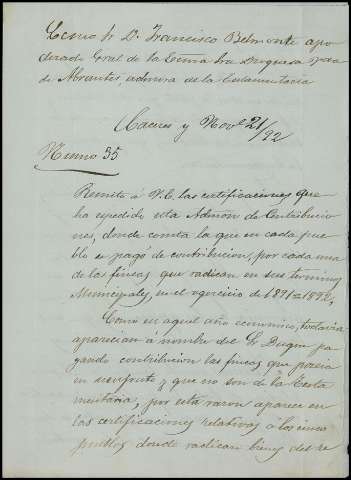 Excmo Sr Dn. Francisco Belmonte apo
derado Gral de la Excma Sra Duquesa Vda
de Abrantes, admora de la Testamentaria
Caceres y Nove 21/92
Numo 35
Remito á V.E. las certificaciones que
ha expedido esta Admon de Contribucio
nes, donde consta lo que en cada pue
blo se pagó de contribucion, por cada una
de las fincas que radican en sus terminos
Municipales, en el egercicio de 1891 a 1892,
Como en aquel año economico, todavia
aparecian á nombre del Sr Duque pa
gando contribucion las fincas que poseia
en usufruto y que no son de la Testa
mentaria, por esta razon aparece en
las certificaciones relativas á los cinco
pueblos donde radican bienes del re